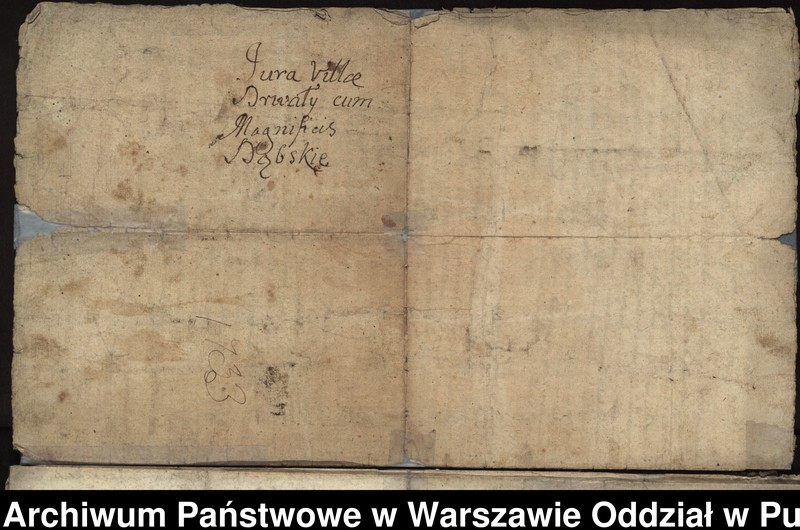 Jura Villæ
Drwały cum
Magnificis
Dąbskie
1733
Archiwum Państwowe w Warszawie Oddział w Pu